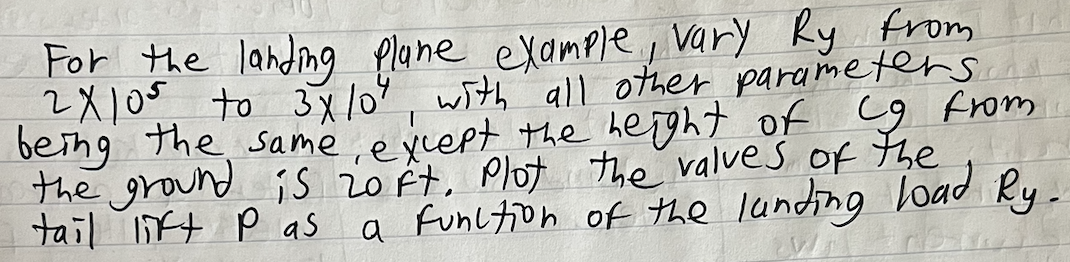 For the landing plane example, vary Ry from
2X10⁵ to 3x10⁴, with all other parameters
being the same, except the height of cg from
the ground is 20 ft. Plot the values of the
tail lift P as a function of the landing load Ry.